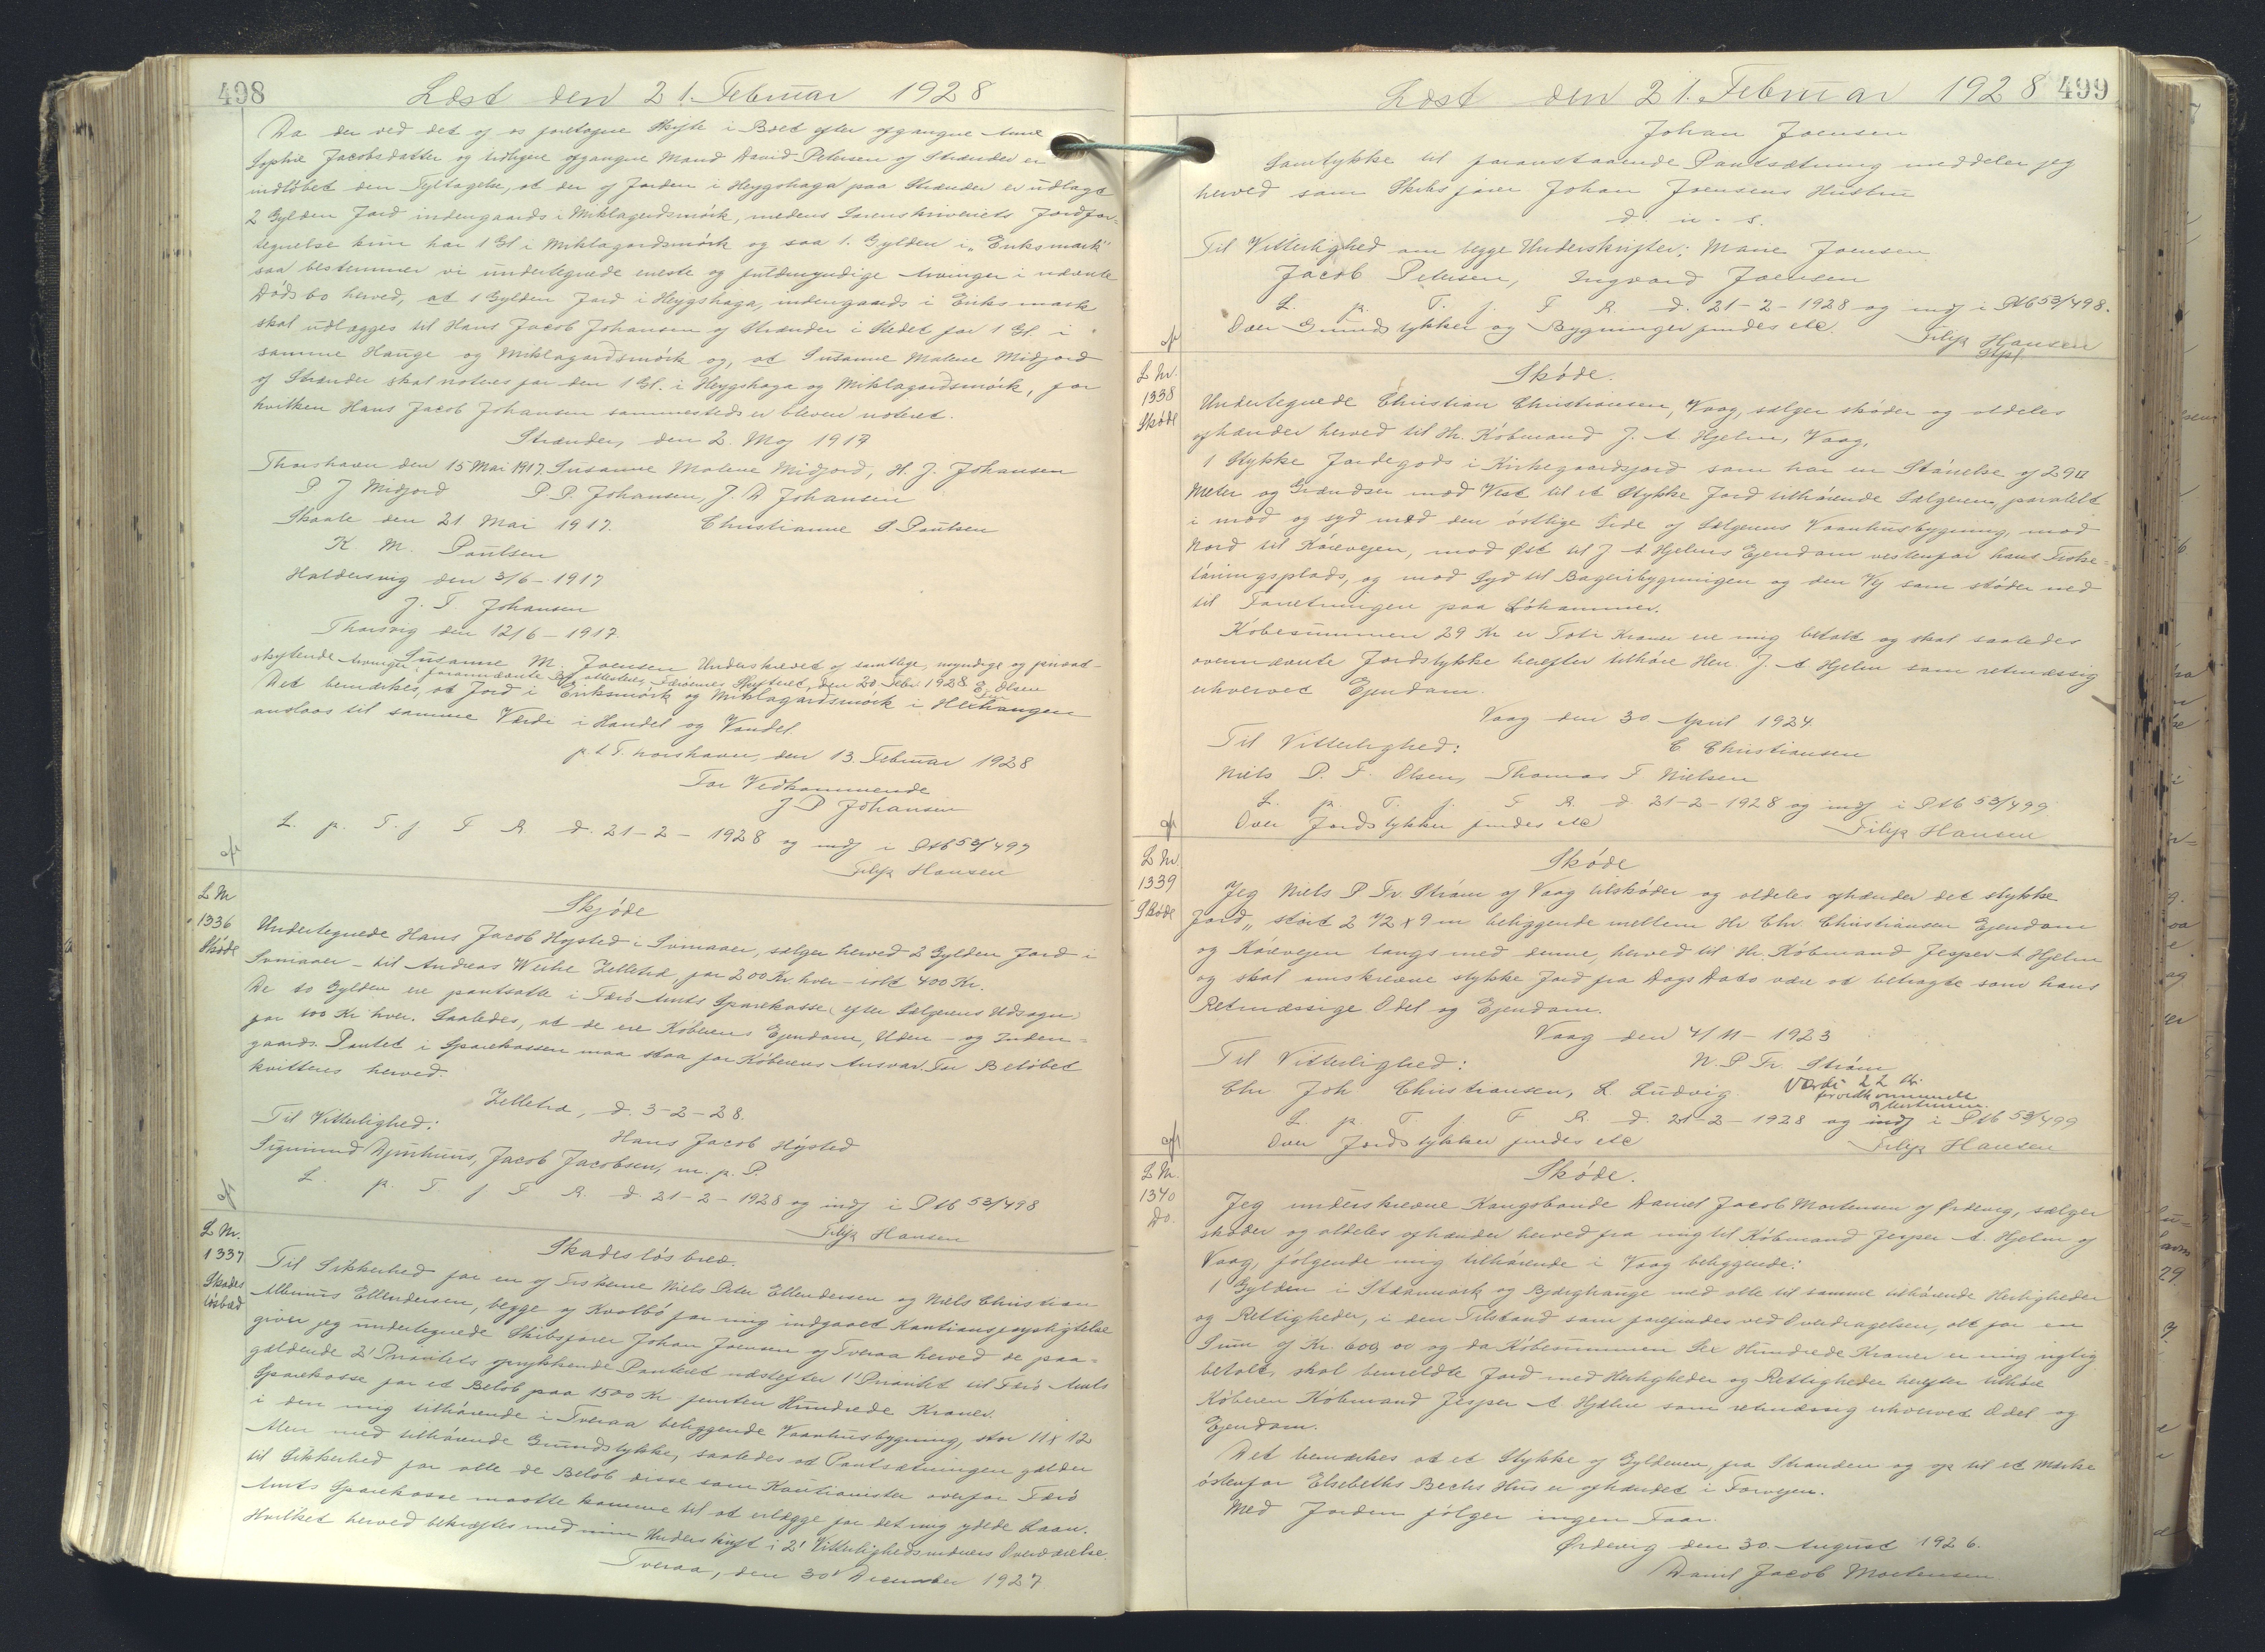 498
Læst den 21. Februar 1928
Da der ved det af os foretagne Skifte i Boet efter afgangne Anne
Sophie Jacobsdatter og tidligere afgangne Mand David Petersen af Strænder er
indløbet den Fejltagelse, at der af Jorden i Heygshaga paa Strænder er udlagt
2 Gylden Jord indengaards i Miklagardsmørk, medens Sorenskriveriets Jordfor-
tegnelse kun har 1 Gl i Miklagardsmørk og saa 1. Gylden i „Eriksmark"
saa bestemmer vi undertegnede eneste og fuldmyndige Arvinger i nævnte
Dødsbo herved, at 1 Gylden Jord i Heygshaga, indengaards i Eriksmark
skal udlægges til Hans Jacob Johansen af Strænder i Stedet for 1 Gl. i
samme Hauge og Miklagardsmørk og, at Susanne Malene Midjord
af Strænder skal noteres for den 1 Gl. i Heygshaga og Miklagardsmørk, for
hvilken Hans Jacob Johansen sammesteds er bleven noteret.
Strænder, den 2. Maj 1917
Thorshavn den 15 Mai 1917. Susanne Malene Midjord, H. J. Johansen
P J Midjord P. P. Johansen, J. D Johansen
Skaale den 21 Mai 1917. Christianne S Poulsen
K. M. Poulsen
Haldersvig den 3/6 - 1917
J. F. Johansen
Thorsvig den 12/6 - 1917.
Susanne M. Joensen Underskrevet af samtlige, myndige og privat-
skiftende Arvinger i forannævnte Bo, attesteres, Færøernes Skifteret, den 20. Febr. 1928 E. Olsen
Det bemærkes, at Jord i Eriksmørk og Miklagardsmørk i Heihaugen
anslaas til samme Værdi i Handel og Vandel.
p. t. Thorshavn, den 13. Februar 1928
For Vedkommende
J P Johansen
L. p. T. f F R d. 21-2- 1928 og indf i Ptb 53/497
Filip Hansen
L Nr
1336
Skøde
Skjøde
Undertegnede Hans Jacob Højsted i Svinaaer, sælger herved 2 Gylden Jord i
Svinaaer - til Andreas Weihe Zelletræ, for 200 Kr. hver - ialt 400 Kr.
De to Gylden ere pantsatte i Færø Amts Sparekasse (efter Sælgerens Udsagn)
for 100 Kr hver. Saaledes, at de ere Køberens Ejendom, Uden- og Inden=
gaards. Pantet i Sparekassen maa staa for Køberens Ansvar. For Beløbet
kvitteres herved.
Zelletræ, d. 3-2-28.
Til Vitterlighed: Hans Jacob Højsted
Sigmund Djurhuus, Jacob Jacobsen, m. p. P.
L. p. T f F R. d. 21-2- 1928 og indf i Ptb 53/498
Filip Hansen
L Nr.
1337
Skades
løsbed
Skadesløsbrev.
Til Sikkerhed for en af Fiskerne Niels Peter Ellendersen og Niels Christian
Albinus Ellendersen, begge af Kvalbø for mig indgaaet Kautionsforpligtelse
giver jeg undertegnede Skibsfører Johan Joensen af Tveraa herved de paa-
gældende 2' Prioritets oprykkende Panteret næstefter 1' Prioritet til Færø Amts
Sparekasse for et Beløb paa 1500 Kr femten Hundrede Kroner.
i den mig tilhørende i Tveraa beliggende Vaanhusbygning, stor 11 x 12
Alen med tilhørende Grundstykke, saaledes at Pantsætningen gælder
til Sikkerhed for alle de Beløb disse som Kautionister overfor Færø
Amts Sparekasse maatte komme til at erlægge for det mig ydede Laan.
Hvilket herved bekræftes med min Underskrift i 2' Vitterlighedsvidners Overværelse.
Tveraa, den 30' December 1927
Læst den 21. Februar 1928
499
Johan Joensen
Samtykke til foranstaaende Pantsætning meddeler jeg
herved som Skibsfører Johan Joensens Hustru
d. u. s.
Til Vitterlighed om begge Underskrifter: Marie Joensen
Jacob Petersen, Ingvard Joensen
L. p. T. f. F R. d. 21-2-1928 og indf i Ptb 53/498.
Over Grundstykker og Bygninger findes etc. Filip Hansen
L Nr.
1338
Skøde
Skøde.
Undertegnede Christian Christiansen, Vaag, sælger skøder og aldeles
afhænder herved til Hr. Købmand J. A Hjelm, Vaag,
1 Stykke Jordegods i Kirkegaardsjord som har en Størrelse af 29□
Meter og Grændser mod Vest til et Stykke Jord tilhørende Sælgeren, paralelt
i mod og syd med den østlige Side af Sælgerens Vaanhusbygning, mod
Nord til Kørevejen, mod Øst til J A Hjelms Ejendom vestenfor hans Fiske-
tørringsplads, og mod Syd til Bageribygningen og den Vej som støder ned
til Forretningen paa Løhammer.
Købesummen 29 Kr er Toti Kroner ere mig betalt og skal saaledes
ovennævnte Jordstykke herefter tilhøre Herr. J. A Hjelm som retmæssig
erhvervet Ejendom.
Vaag den 30 April 1924
Til Vitterlighed: C Christiansen
Niels P. F. Olsen, Thomas F Nielsen
L. p. T. f. F R. d 21-2-1928 og indf i Ptb 53/499
Over Jordstykker findes etc Filip Hansen
L Nr.
1339
Skøde
Skøde
Jeg Niels P Fr. Strøm af Vaag tilskøder og aldeles afhænder det stykke
Jord, stort 2 1/2 x 9 m beliggende mellem Hr Chr. Christiansen Ejendom
og Kørevejen langs med denne, herved til Hr. Købmand Jesper A Hjelm
og skal omskrevne stykke Jord fra Dags Dato være at betragte som hans
Retmæssige Odel og Ejendom.
Vaag den 4/11 - 1923
Til Vitterlighed: N. P Fr. Strøm
Chr Joh Christiansen, L Ludvig. Værdi 22 Kr.
for vedkommende
L. p. T. f. F R. d. 21-2-1928 og indf i Ptb 53/499
Over Jordstykker findes etc Filip Hansen
L Nr.
1340
Do.
Skøde.
Jeg underskrevne Kongsbonde Daniel Jacob Mortensen af Ørdevig, sælger
skøder og aldeles afhænder herved fra mig til Købmand Jesper A. Hjelm af
Vaag, følgende mig tilhørende i Vaag beliggende:
1 Gylden i Staanmørk og Bjærghauge med alle til samme tilhørende Herligheder
og Rettigheder, i den Tilstand som forefindes ved Overdragelsen, alt for en
Sum af Kr. 600 00 og da Købesummen Sex Hundrede Kroner er mig rigtig
betalt, skal bemeldte Jord med Herligheder og Rettigheder herefter tilhøre
Køberen Købmand Jesper A Hjelm som retmæssig erhvervet Odel og
Ejendom.
Det bemærkes at et Stykke af Gyldenen, fra Stranden og op til et Mærke
østenfor Elsebeths Bechs Hus er afhændet i Forvejen.
Med Jorden følger ingen Faar.
Ørdevig den 30. August 1926.
Daniel Jacob Mortensen